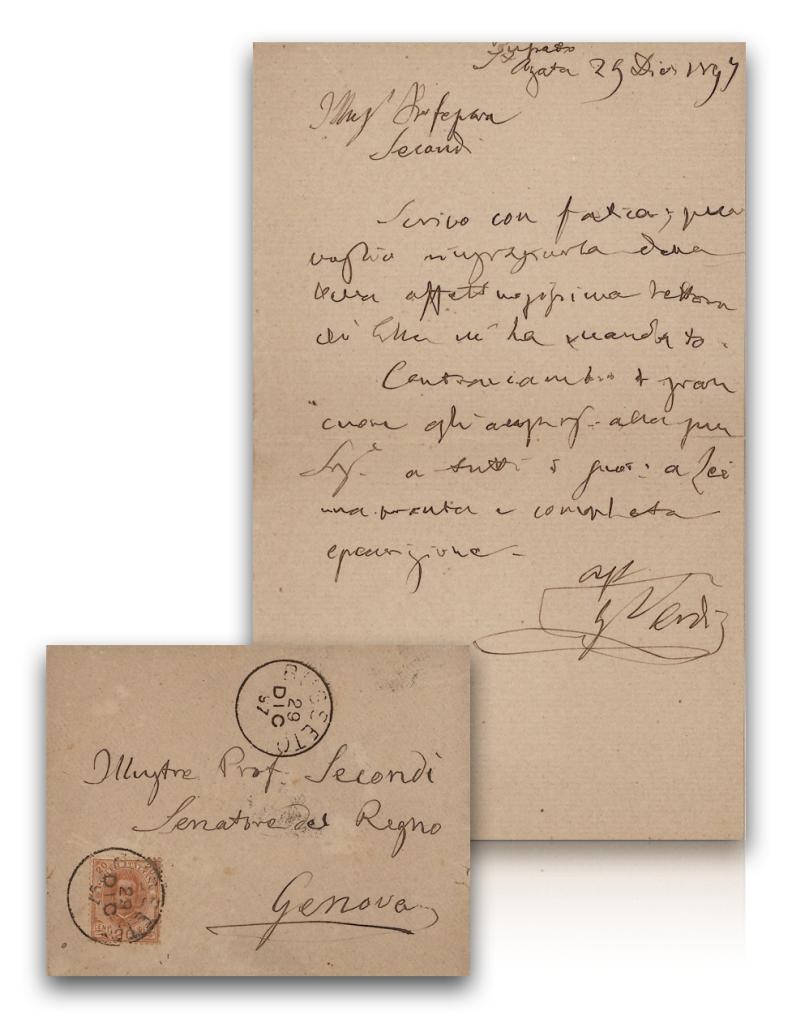 Busseto
St Agata 29 Dic 1897
Illus. Professore
Secondi
Scrivo con fatica; pure
voglio ringraziarla della
sua affettuosissima lettera
di Ella m'ha mandato.
Contraccambio di gran
cuore gli augurj alla sua
Sigra a tutti i suoi: a Lei
una pronta e completa
guarigione.
G Verdi
BUSSETO
29
DIC
97
Illustre Prof. Secondi
Senatore del Regno
Genova
29
DIC
97